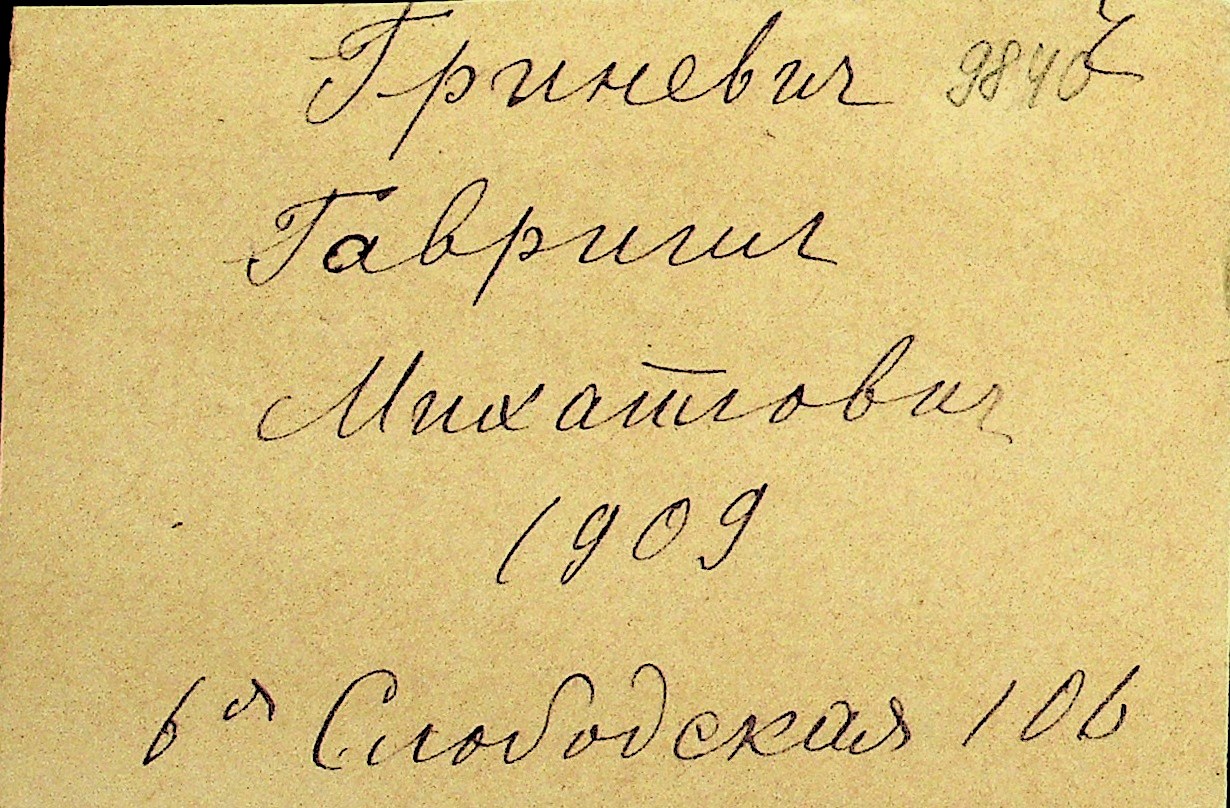 Гриневич 9840
Гавриил
Михайлович
1909
6ая Слободская 106